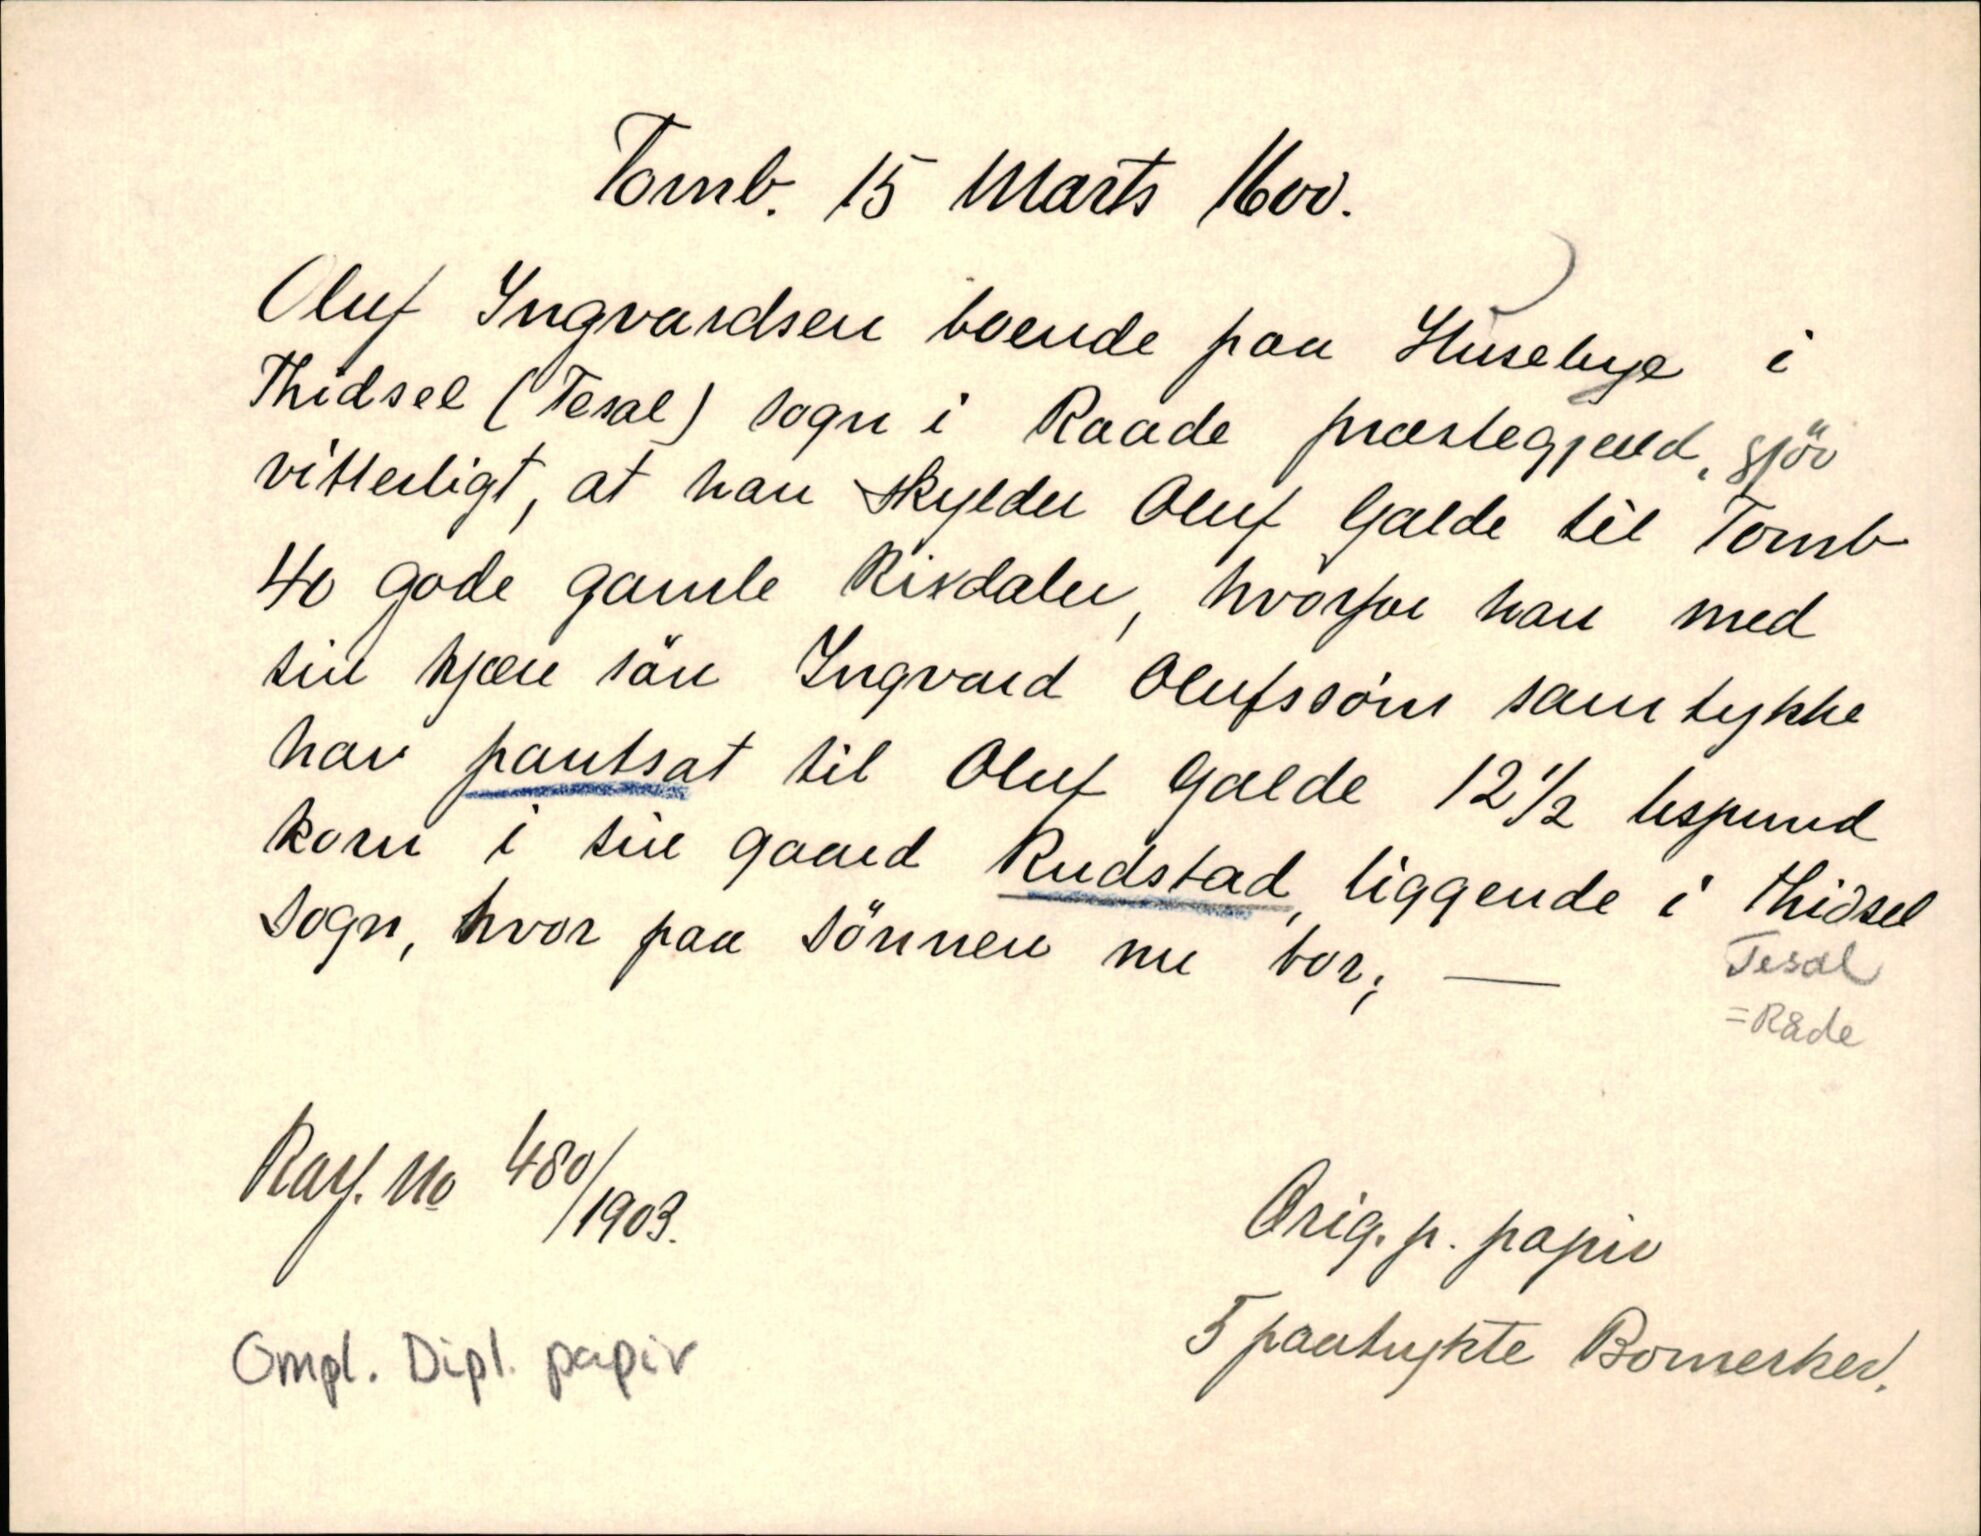 Tomb. 15 Marts 1600.
Oluf Ingvardsen boende paa Husebye i
Thidsel (Tesal) sogn i Raade præstegjæld, gjör
vitterligt, at han skylder Oluf Galde til Tomb
40 gode gamle Rixdaler, hvorfor han med
sin kjære sön Ingvard Olufssöns samtykke
har pantsat til Oluf Galde 12 1/2 lispund
korn i sin gaard Rudstad, liggende i Thidsel
sogn, hvor paa sönnen nu bor; —
Tesal
=Råde
No 480/1903.
Orig. p. papir
Ompl. Dipl. papir
5 paatrykte Bomerker.